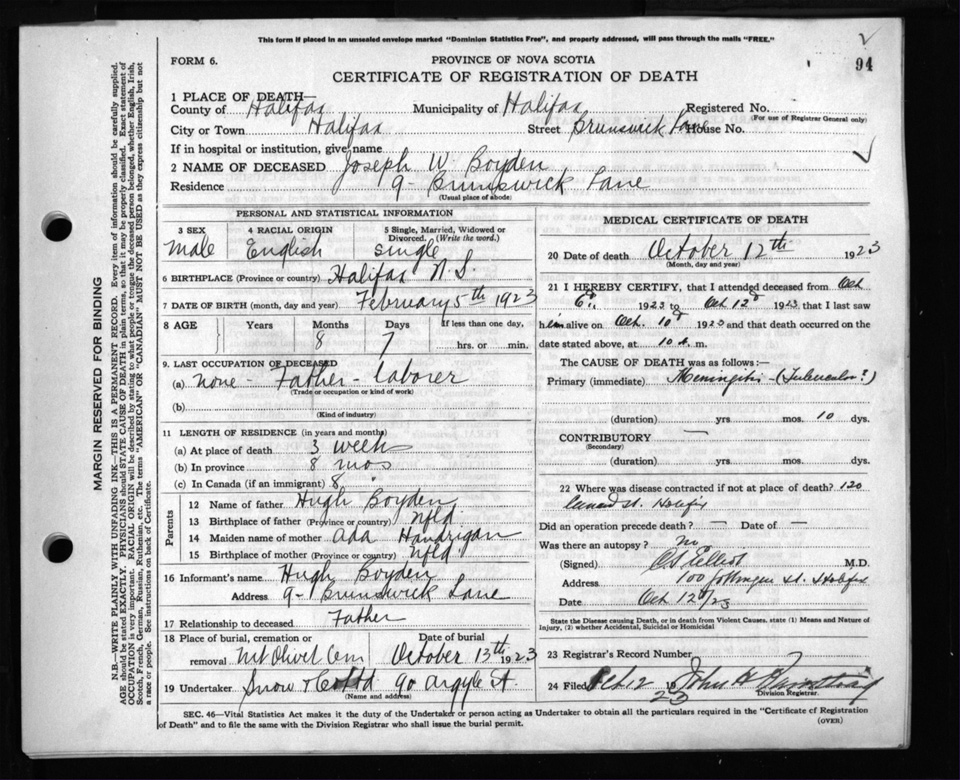 This form if placed in an unsealed envelope marked "Dominion Statistics Free", and properly addressed, will pass through the mails "FREE."
FORM 6.
PROVINCE OF NOVA SCOTIA
94
CERTIFICATE OF REGISTRATION OF DEATH
1 PLACE OF DEATH—
County of Halifax Municipality of Halifax Registered No.
(For use of Registrar General only)
City or Town Halifax Street Brunswick Lane House No.
If in hospital or institution, give name
2 NAME OF DECEASED Joseph W. Boyden
Residence 9 - Brunswick Lane
(Usual place of abode)
PERSONAL AND STATISTICAL INFORMATION
3 SEX 4 RACIAL ORIGIN 5 Single, Married, Widowed or Divorced. (Write the word.)
Male English Single
6 BIRTHPLACE (Province or country) Halifax N.S.
7 DATE OF BIRTH (month, day and year) February 5th 1923
8 AGE Years Months Days If less than one day,
8 7 hrs. or min.
9. LAST OCCUPATION OF DECEASED
(a) None - Father - laborer
(Trade or occupation or kind of work)
(b)
(Kind of industry)
11 LENGTH OF RESIDENCE (in years and months)
(a) At place of death 3 weeks
(b) In province 8 mos
(c) In Canada (if an immigrant) 8 "
Parents
12 Name of father Hugh Boyden
13 Birthplace of father (Province or country) Nfld.
14 Maiden name of mother Ada Handrigan
15 Birthplace of mother (Province or country) Nfld.
16 Informant's name Hugh Boyden
Address 9 - Brunswick Lane
17 Relationship to deceased Father
18 Place of burial, cremation or removal Mt Olivet Cem Date of burial October 13th 1923
19 Undertaker Snow & Co Ltd 90 Argyle St
(Name and address)
MEDICAL CERTIFICATE OF DEATH
20 Date of death October 12th 1923
(Month, day and year)
21 I HEREBY CERTIFY, that I attended deceased from Oct
6th 1923 to Oct 12th 1923 that I last saw
him alive on Oct. 10th 1923 and that death occurred on
date stated above, at 10 a. m.
The CAUSE OF DEATH was as follows:—
Primary (immediate) Meningitis - (Tubercular?)
(duration) yrs mos. 10 dys.
CONTRIBUTORY —
(Secondary)
(duration) yrs. mos. dys.
22 Where was disease contracted if not at place of death? 120
St. Halifax
Did an operation precede death? — Date of —
Was there an autopsy? no
(Signed) Elliott M.D.
Address 100 Gottingen St. Halifax
Date Oct 12/23
State the Disease causing Death, or in death from Violent Causes, state (1) Means and Nature of Injury, (2) whether Accidental, Suicidal or Homicidal
23 Registrar's Record Number
24 Filed Oct 12 19 23 John
Division Registrar.
SEC. 46—Vital Statistics Act makes it the duty of the Undertaker or person acting as Undertaker to obtain all the particulars required in the "Certificate of Registration of Death" and to file the same with the Division Registrar who shall issue the burial permit.
(OVER)
MARGIN RESERVED FOR BINDING
N.B.—WRITE PLAINLY WITH UNFADING INK—THIS IS A PERMANENT RECORD. Every item of information should be carefully supplied. AGE should be stated EXACTLY. PHYSICIANS should STATE CAUSE OF DEATH in plain terms, so that it may be properly classified. Exact statement of OCCUPATION is very important. RACIAL ORIGIN will be described by stating to what people or tongue the deceased person belonged, whether English, Irish, Scotch, French, German, Russian, Ruthenian, etc. The terms "AMERICAN" or "CANADIAN" MUST NOT BE USED as they express citizenship but not a race or people. See instructions on back of Certificate.